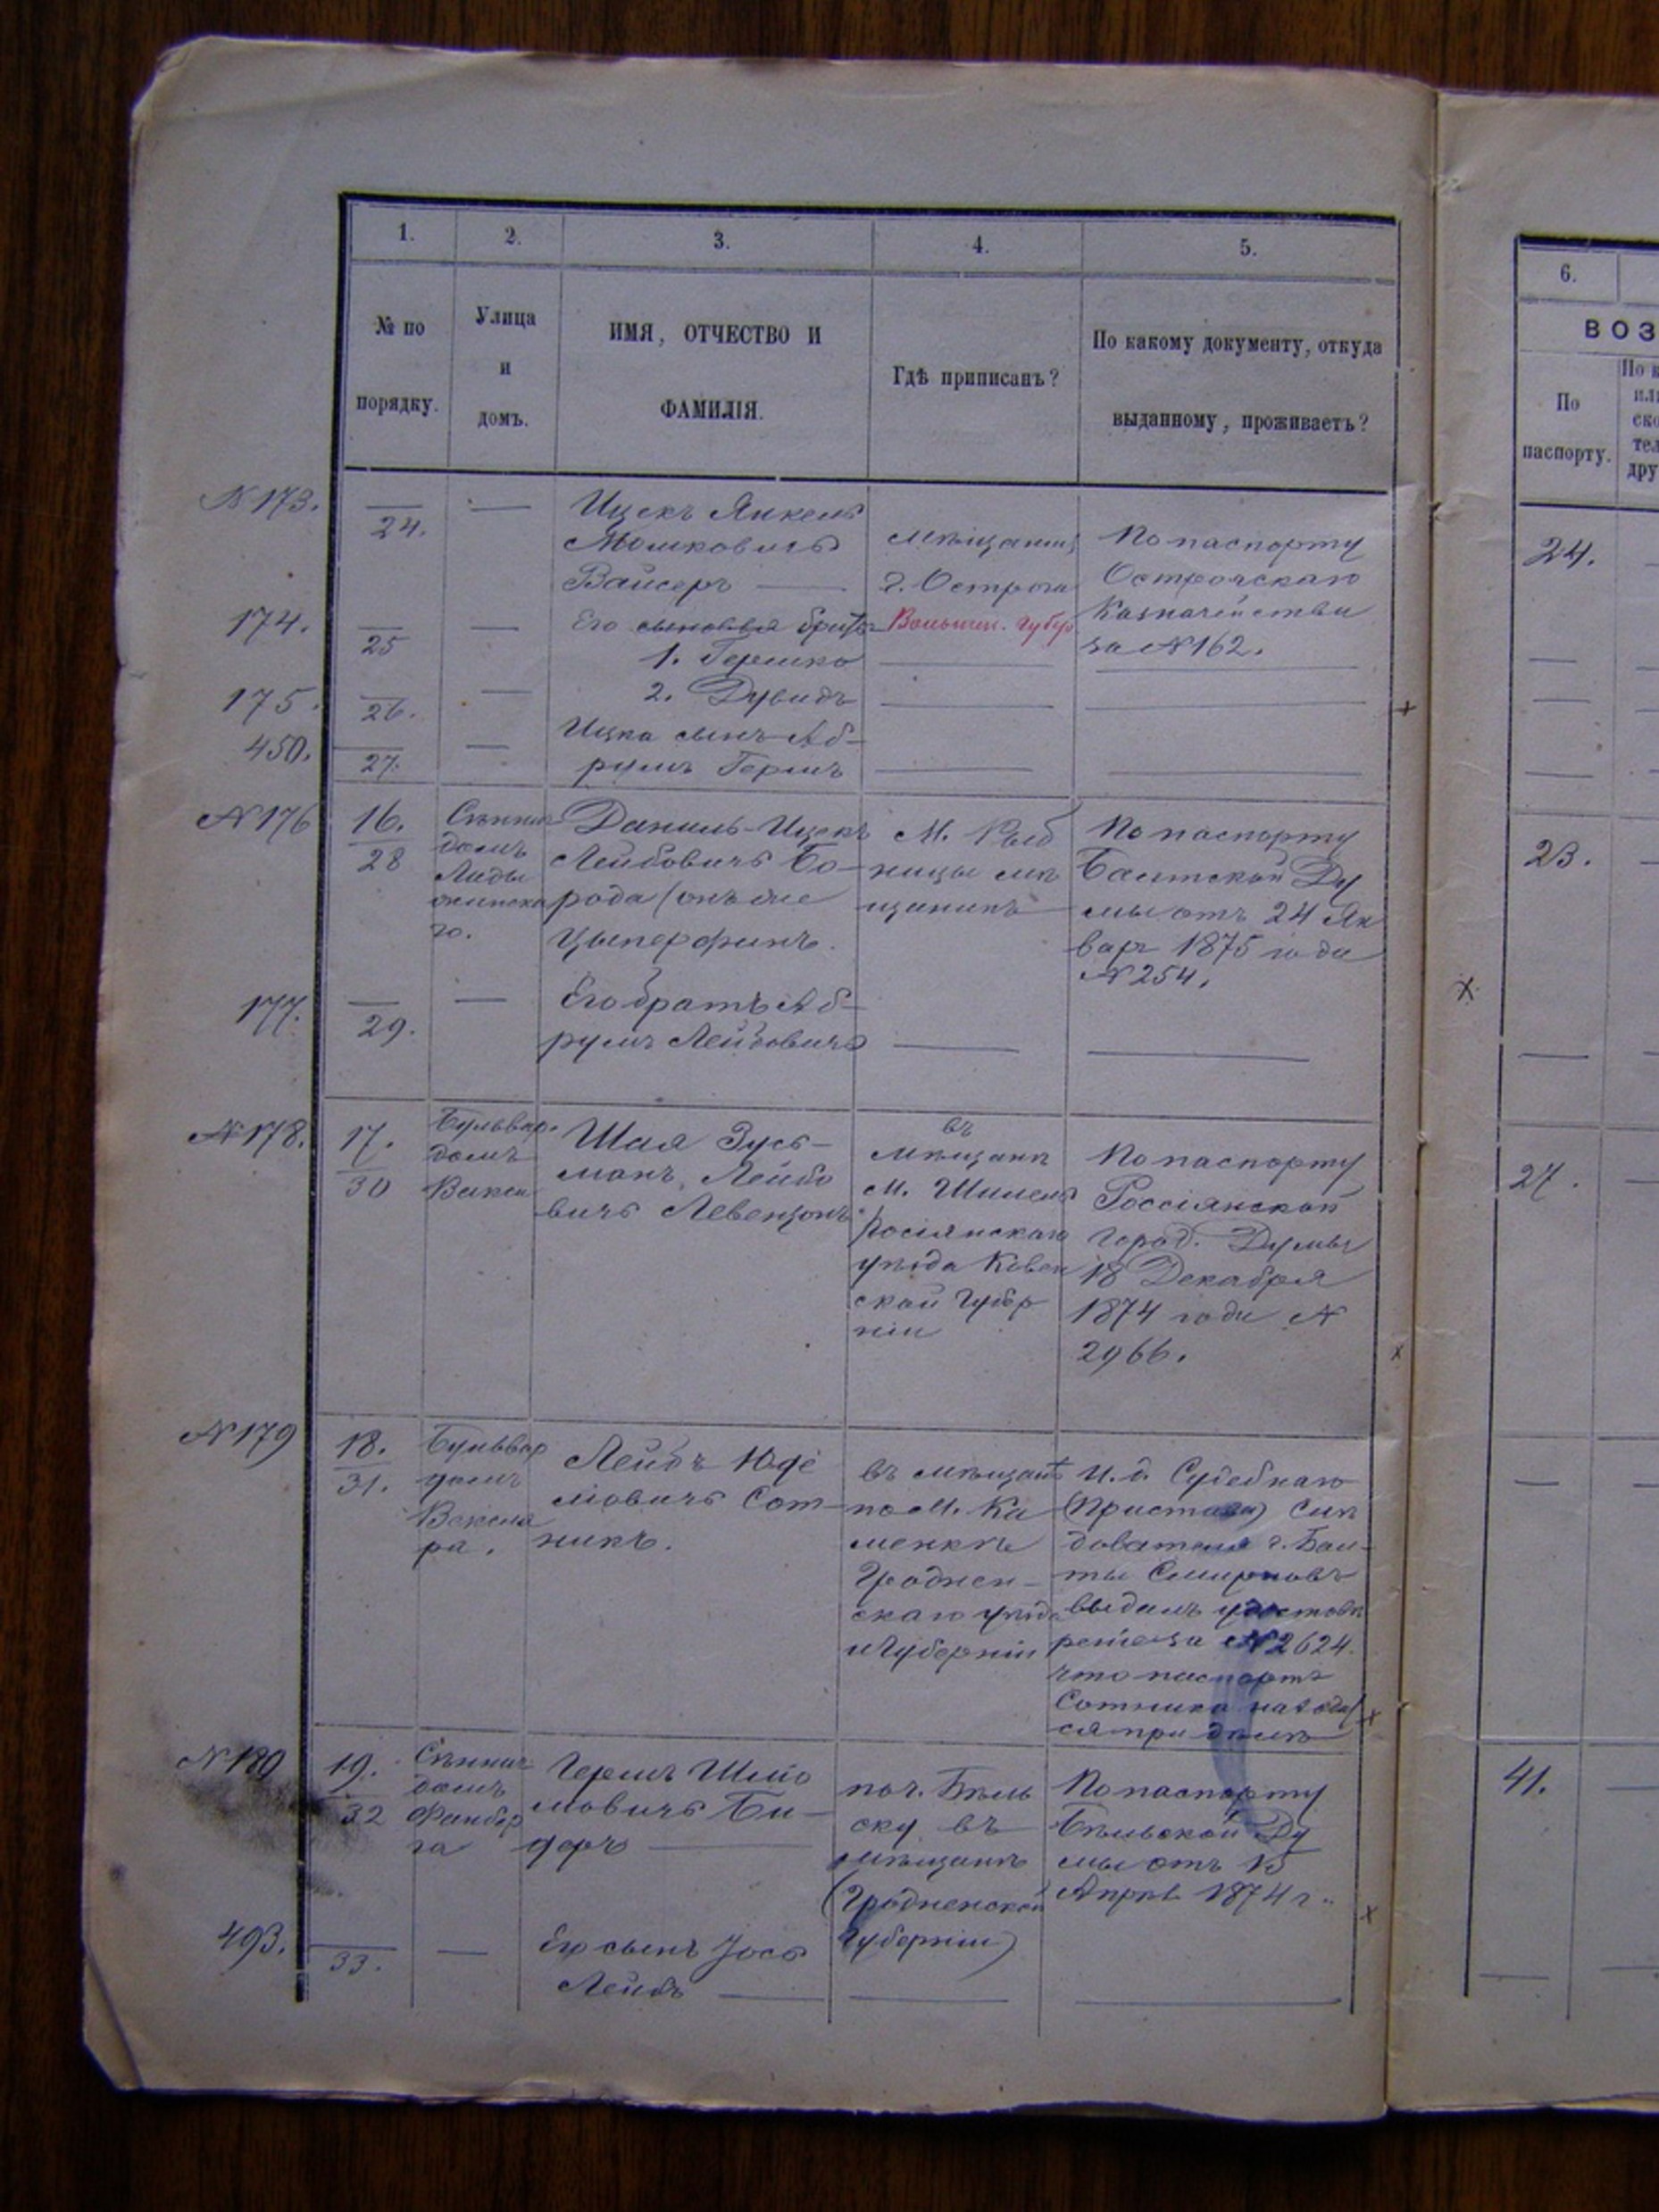 1.
2.
3.
4.
5.
№ по
порядку.
Улица
и
домъ.
ИМЯ, ОТЧЕСТВО И
ФАМИЛІЯ.
Гдѣ приписанъ?
По какому документу, откуда
выданному, проживаетъ?
6.
ВОЗ
По
паспорту.
По к
ско
тел
дру
N 173.
24.
Ицекъ Янкель
Мошковичъ
Вайсеръ
мѣщанинъ
г. Острога
Волынск. губер
По паспорту
Острожскаго
Казначейства
за N 162.
24.
174.
25
Его сыновья братья
1. Гершко
175.
26.
2. Дувидъ
450.
27.
Ицка сынъ Аб-
румъ Гершъ
N 176
16.
28
Сѣнная
домъ
го.
Даниль-Ицекъ
Лейбовичъ Бо-
рода (онъ же
Цыперфинъ.
М. Рыб
ницы мѣ
щанинъ
По паспорту
Балтской Ду
мы отъ 24 Ян
варя 1875 года
N 254.
23.
177.
29.
Его братъ Аб-
румъ Лейбовичъ
N 178.
17.
30
Бульвар.
домъ
Шая Зусь-
манъ Лейбо
вичъ Левензонъ
въ
мѣщане
м. Шилель
Росіянскаго
уѣзда Ковен
ской Губер
ніи
По паспорту
Россіянской
Город. Думы
18 Декабря
1874 года N
2966.
27.
N 179
18.
31.
Бульвар
домъ
Векслера
ра.
Лейбъ Юде
ліовичъ Сот-
никъ.
въ мѣщанѣ
по М. Ка
менкѣ
Гроднен-
скаго уѣзда
и Губерніи
И. д. Судебнаго
(Пристава) Слѣ
дователя г. Бал-
ты Смирновъ
выдалъ удостовѣ
реніе за N 2624.
что паспортъ
Сотника находи
ся при дѣлѣ
N 180
19.
32
Сѣнная
домъ
Фанбер
га
Гершъ Шліо
мовичъ Би-
деръ
по г. Бѣль
ску въ
мѣщане
(Гродненской
Губерніи)
По паспорту
Бѣльской Ду
мы отъ 15
Апрѣл 1874 г.
41.
493.
33.
Его сынъ Іось
Лейбъ